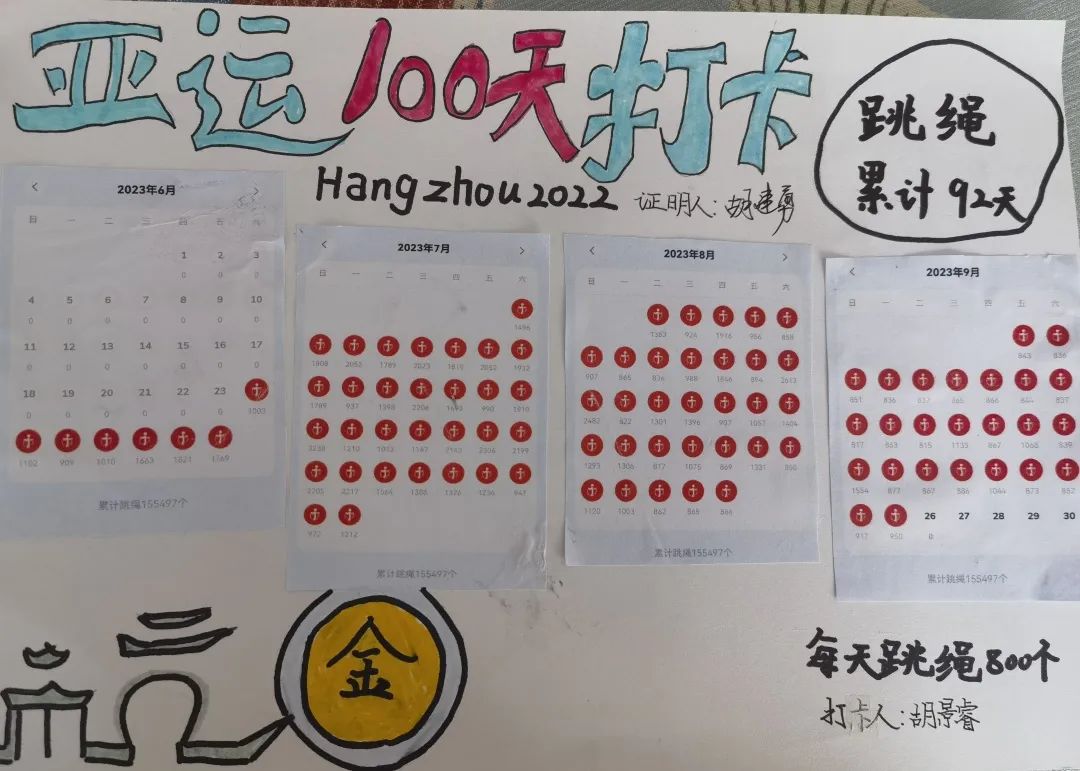 亚运100天打卡
Hangzhou2022
证明人:胡建勇
跳绳
累计92天
2023年6月
日 一 二 三 四 五 六
1 2 3
0 0 0
4 5 6 7 8 9 10
0 0 0 0 0 0 0
11 12 13 14 15 16 17
0 0 0 0 0 0 0
18 19 20 21 22 23
0 0 0 0 0 0 1003
1102 909 1010 1663 1821 1769
累计跳绳155497个
2023年7月
日 一 二 三 四 五 六
1496
1808 2053 1789 2023 1819 2052 1932
1789 937 1398 2206 1693 990 1810
2238 1210 1013 1167 2143 2306 2199
2205 2217 1564 1306 1326 1236 941
972 1212
累计跳绳155497个
2023年8月
日 一 二 三 四 五 六
1363 924 1916 956 858
907 865 836 988 1846 894 2613
2482 822 1301 1396 907 1057 1404
1293 1306 817 1075 869 1331 850
1120 1003 862 865 866
累计跳绳155497个
2023年9月
日 一 二 三 四 五 六
843 836
851 836 837 865 866 844 837
817 863 815 1135 867 1068 839
1554 877 867 886 1044 873 852
912 950 26 27 28 29 30
0
累计跳绳155497个
金
每天跳绳800个
打卡人:胡景睿